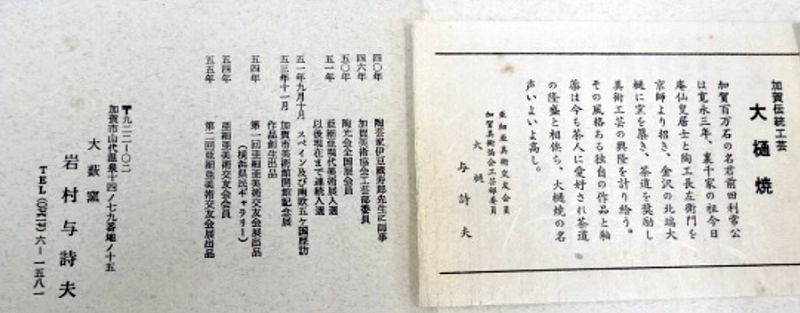 加賀伝統工芸
大樋焼
加賀百万石の名君前田利常公
は寛永三年、裏千家の祖今日
庵仙叟居士と陶工長左衛門を
京師より招き、金沢の北端大
樋に窯を築き、茶道を奨励し
美術工芸の興隆を計り給う。
その風格ある独自の作品と釉
薬は今も茶人に愛好され茶道
の隆盛と相俟ち、大樋焼の名
声いよいよ高し。
亜細亜美術交友会員
加賀美術協会工芸部委員
大樋 与詩夫
四〇年 陶芸家伊豆蔵寿郎先生に師事
四六年 加賀美術協会工芸部委員
五〇年 陶光会全国展会員
五一年 亜細亜現代美術展入選
以後現在まで連続入選
五一年九月十月 スペイン及び南欧五ヶ国歴訪
五三年十一月 加賀市美術館開館記念展
作品創生出品
五四年 第一回亜細亜美術交友会展出品
(横浜県民ギャラリー)
五四年 亜細亜美術交友会会員
五五年 第二回亜細亜美術交友会展出品
〒九二二-〇二
加賀市山代温泉十四ノ七九番地ノ十五
大薮窯
岩村与詩夫
TEL(〇七六一七)六-一五八一